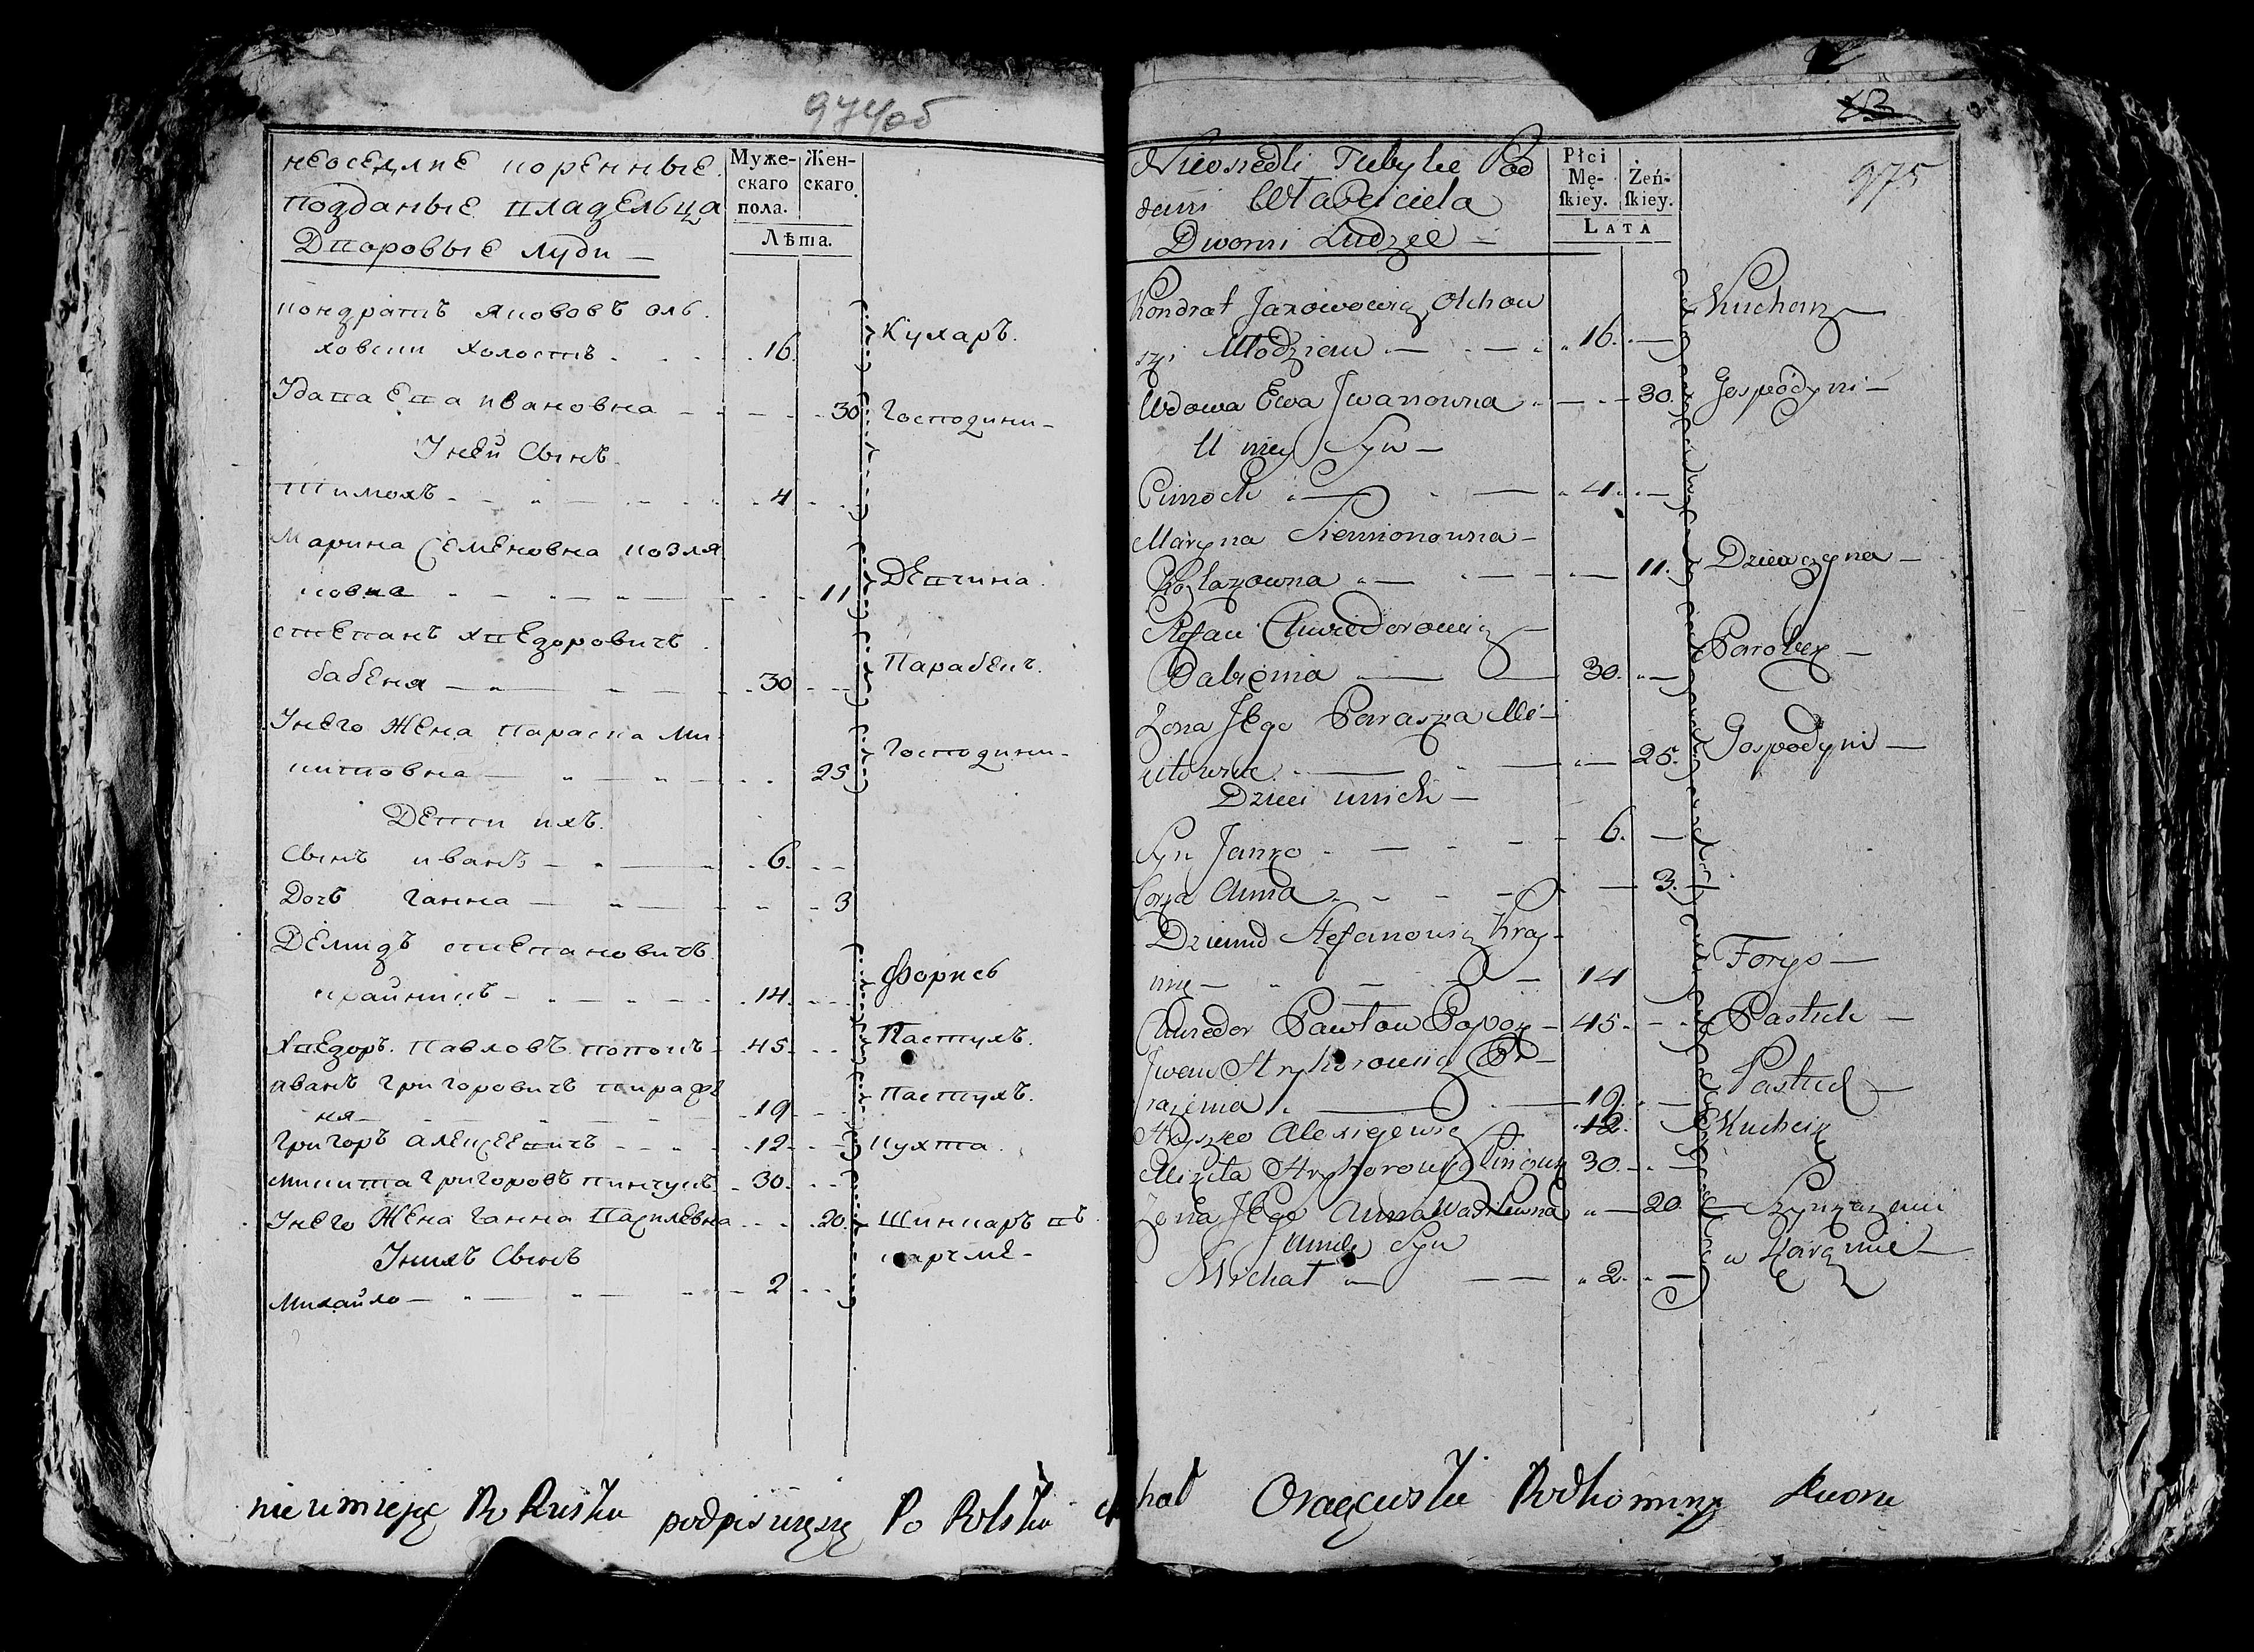 974об
неоседлие коренные
подданые владельца
Дворовые луди —
Муже-
скаго
пола.
Жен-
скаго.
Лѣта.
кондратъ якововъ оль
ховски холостъ 16. Кухаръ.
Удава Ева ивановна 30 Господини
У неи Сынъ
Тимохъ 4
Марина Семеновна козля
ковна 11 Девчина.
степанъ хведоровичъ
бабеня 30 Парабекъ.
У него Жена параска ми
китовна 25 Господини
Дети ихъ.
Сынъ иванъ 6.
Дочъ ганна 3
Демидъ степановичъ
крайникъ 14. Форись
Хведоръ Павловъ попокъ 45. Пастухъ.
иванъ григоровичъ
ня 19 Пастухъ.
григоръ алексеевичъ 12. кухта.
микита григоровъ пинчукъ 30.
У него Жена ганна Василевна 20. Шинкаръ въ
У нихъ Сынъ корчме
Михайло 2
nie umiejąc Po Rusku podpisuję się Po Polsku
53
975
Nieosiedli Tubylce Pod
dani Właściciela
Dworni Ludzie —
Płci
Mę-
skiey.
Żeń-
skiey.
LATA
Kondrat Jakowowicz Olchow
ski Młodzian 16. Kucharz
Wdowa Ewa Jwanowna 30. Gospodyni
U niey Syn —
Cimoch 4.
Maryna Siemionowna
Kozlakowna 11. Dziewczyna
Stefan Chwiedorowicz
Babienia 30. Parobek
Zona Jego Paraska Mi-
kitowna 25. Gospodyni
Dzieci u nich —
Syn Janko 6.
Corka Anna 3.
Dziemid Stefanowicz Kray-
nik 14 Foryś
Chwiedor Pawlow Popok 45. Pastuch
Jwan Hryhorowicz
19. Pastuch
Hryszko Alexiejewicz 12. Kuchcik
Mikita Hryhorow Pinczuk 30.
Zona Jego Anna Wasilewna 20. Szynkarzem
U nich Syn w Karczmie
Michał 2.
Podkomorzy